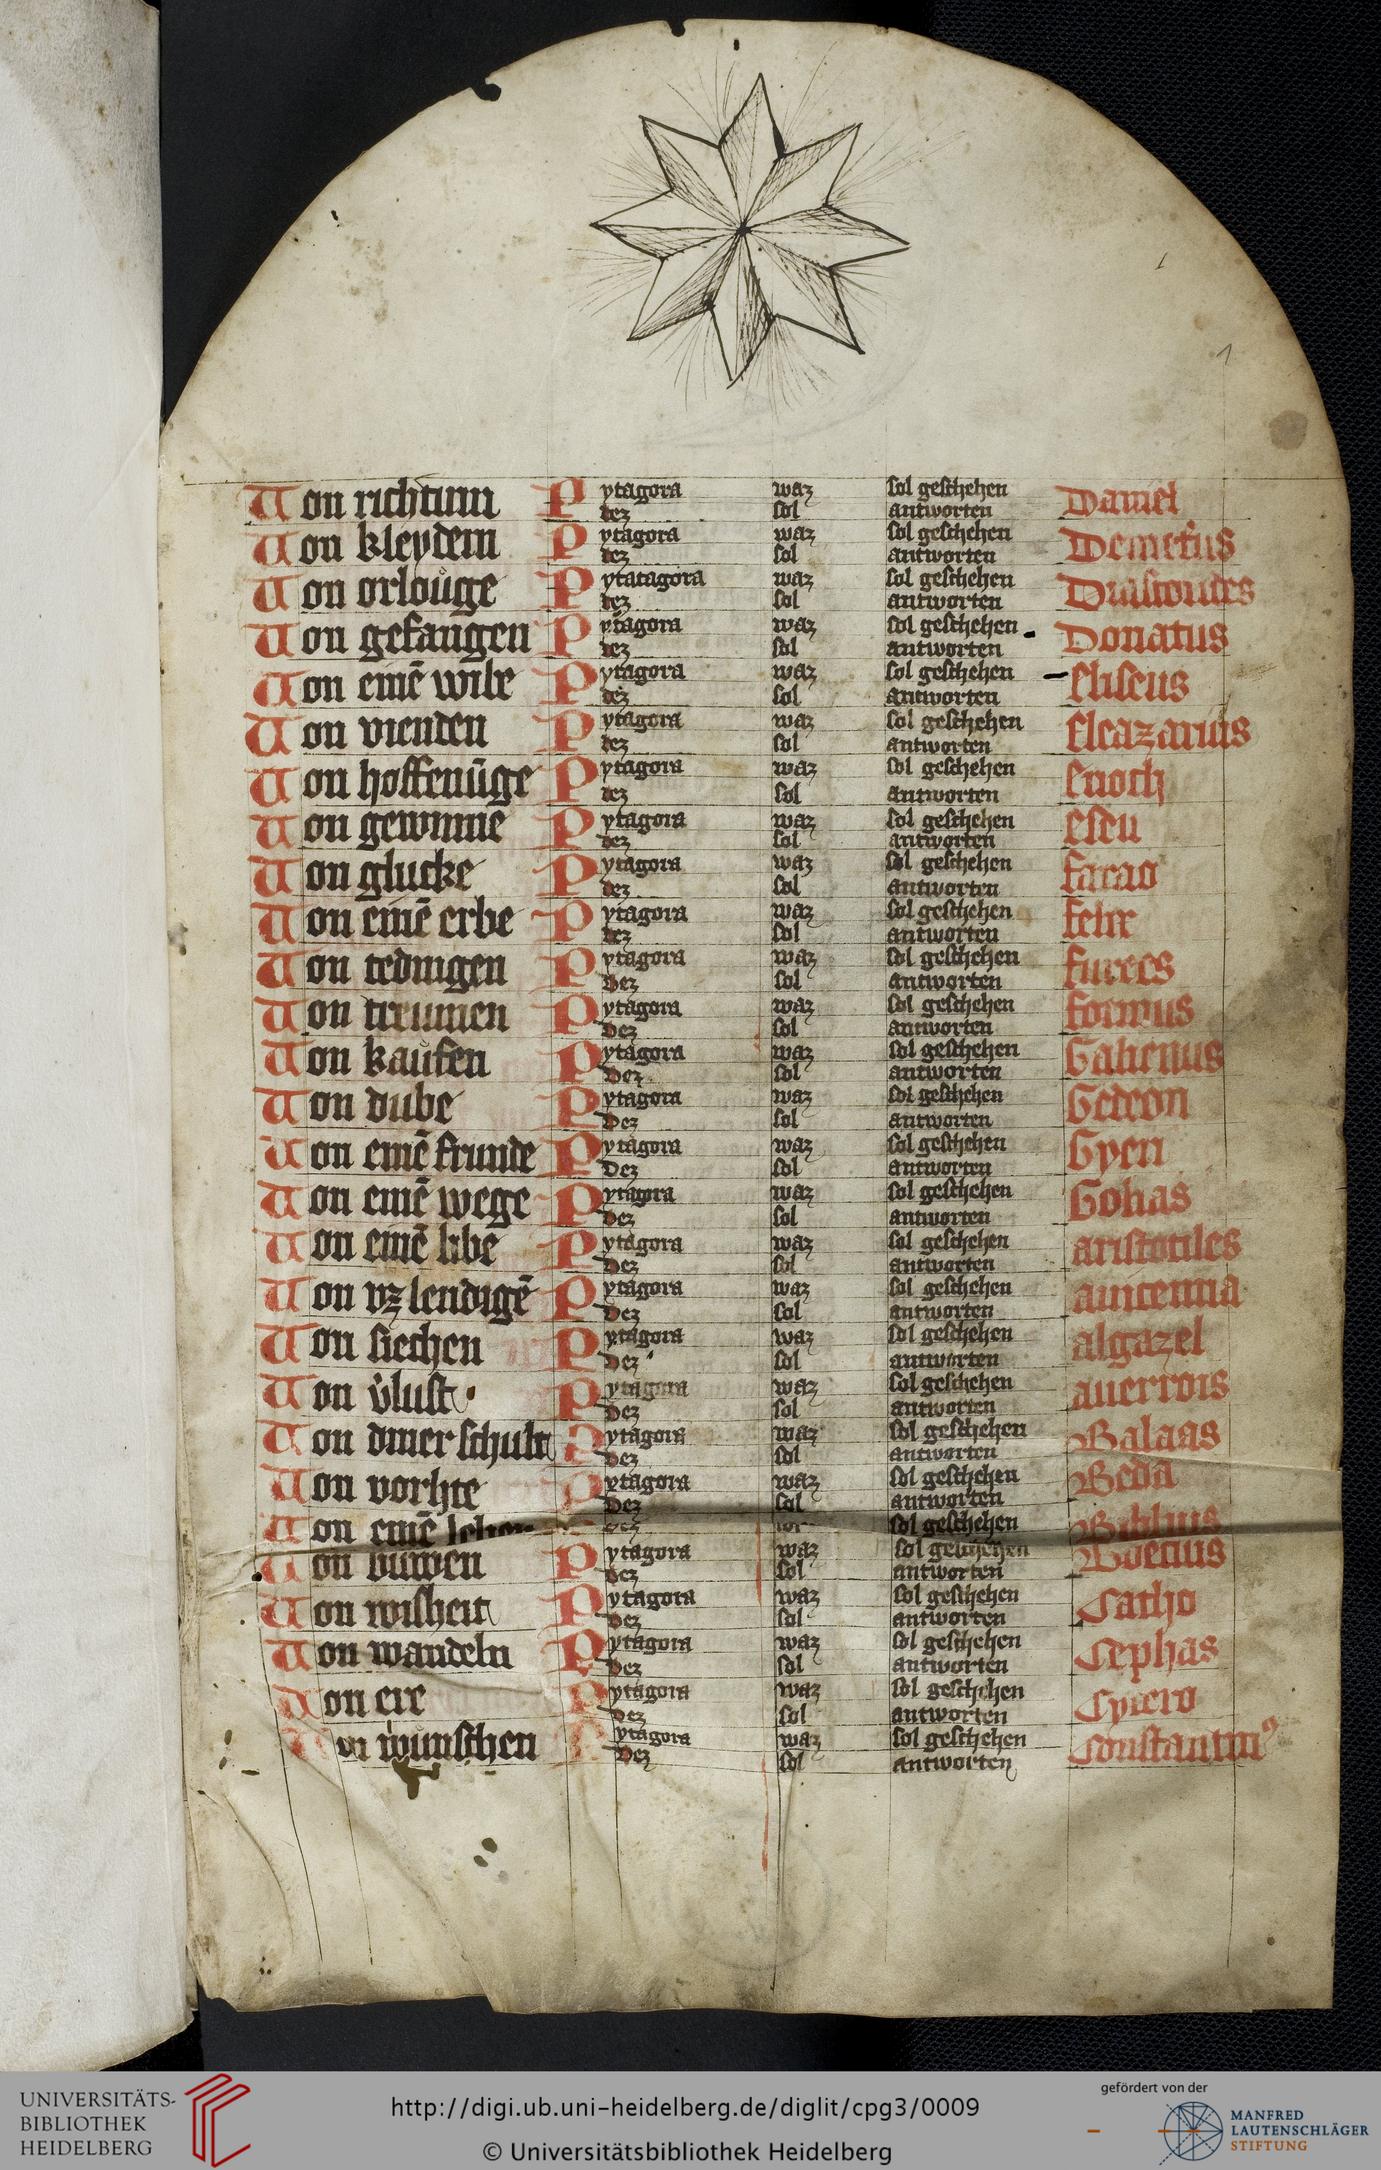 Von richtum Pytagora waz sol geschehen Daniel
dez sol antworten
Von kleydern Pytagora waz sol geschehen Demetrius
dez sol antworten
Von orlouge Pytatagora waz sol geschehen
dez sol antworten
Von gefangen Pytagora waz sol geschehen Donatus
dez sol antworten
Von einē wibe Pytagora waz sol geschehen Eliseus
dez sol antworten
Von vienden Pytagora waz sol geschehen Eleazarius
dez sol antworten
Von hoffenūge Pytagora waz sol geschehen Enoch
dez sol antworten
Von gewinne Pytagora waz sol geschehen Eseu
dez sol antworten
Von glucke Pytagora waz sol geschehen farao
dez sol antworten
Von einē erbe Pytagora waz sol geschehen felix
dez sol antworten
Von tedingen Pytagora waz sol geschehen
Dez sol antworten
Von treumen Pytagora waz sol geschehen
Dez sol antworten
Von kaufen Pytagora waz sol geschehen Galienus
Dez sol antworten
Von dube Pytagora waz sol geschehen Gedeon
Dez sol antworten
Von einē frunde Pytagora waz sol geschehen Gyen
Dez sol antworten
Von einē wege Pytagora waz sol geschehen Golias
Dez sol antworten
Von einē libe Pytagora waz sol geschehen aristotiles
Dez sol antworten
Von vz lendigē Pytagora waz sol geschehen auicenna
Dez sol antworten
Von siechen Pytagora waz sol geschehen algazel
Dez sol antworten
Von v̓lust Pytagora waz sol geschehen auerrois
Dez sol antworten
Von diner schult Pytagora waz sol geschehen Balaas
Dez sol antworten
Von vorhte Pytagora waz sol geschehen Beda
Dez sol antworten
Von einē sol geschehen Biblius
Von buwen Pytagora waz sol geschehen Boecius
Dez sol antworten
Von wisheit Pytagora waz sol geschehen Catho
Dez sol antworten
Von wandeln Pytagora waz sol geschehen Cephas
Dez sol antworten
Von ere Pytagora waz sol geschehen Cyicro
Dez sol antworten
Von wunschen Pytagora waz sol geschehen Constantinꝰ
Dez sol antworten
1
1
UNIVERSITÄTS-
BIBLIOTHEK
HEIDELBERG
http://digi.ub.uni-heidelberg.de/diglit/cpg3/0009
© Universitätsbibliothek Heidelberg
gefördert von der
MANFRED
LAUTENSCHLÄGER
STIFTUNG